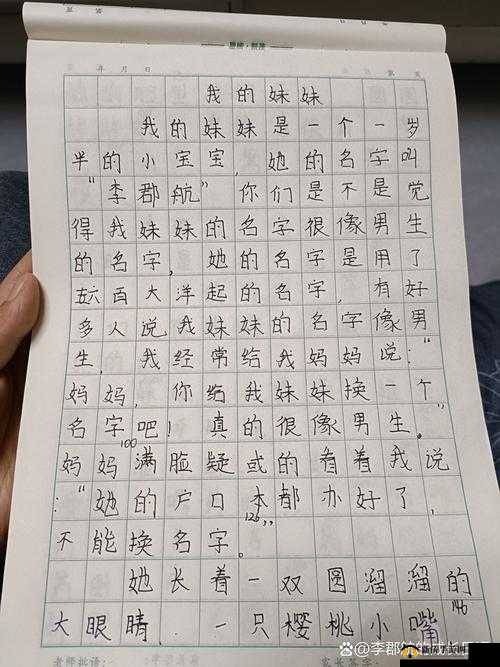 年 月 日
我的妹妹
我的妹妹是一个一岁
半的小宝宝，她的名字叫
“李郡航”你们是不是觉
得我妹妹的名字很像男生
的名字，她的名字是用了
五六百大洋起的名字，有好
多人说我妹妹的名字像男
生，我经常给我妈妈说：“
妈妈，你给我妹妹换一个
名字吧！真的很像男生。”
100
妈妈满脸疑或的看着我说
：“她的户口本都办好了，
不能换名字。”
126
她长着一双圆溜溜的
大眼睛．一只樱桃小嘴
146
老师批语：